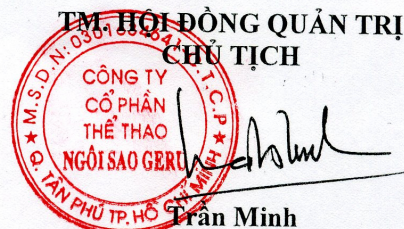 TM. HỘI ĐỒNG QUẢN TRỊ
CHỦ TỊCH
M.S.D.N: C.T.C.P
CÔNG TY
CỔ PHẦN
THỂ THAO
NGÔI SAO GERU
Q. TÂN PHÚ TP. HỒ CHÍ MINH
Trần Minh